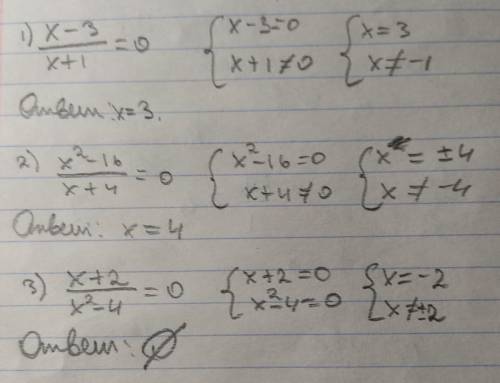 1) (x-3)/(x+1) = 0 { x-3=0 { x=3
x+1≠0 x≠-1
Ответ: x=3.
2) (x²-16)/(x+4) = 0 { x²-16=0 { x = ±4
x+4≠0 x ≠ -4
Ответ: x = 4
3) (x+2)/(x²-4) = 0 { x+2=0 { x=-2
x²-4=0 x≠±2
Ответ: ∅